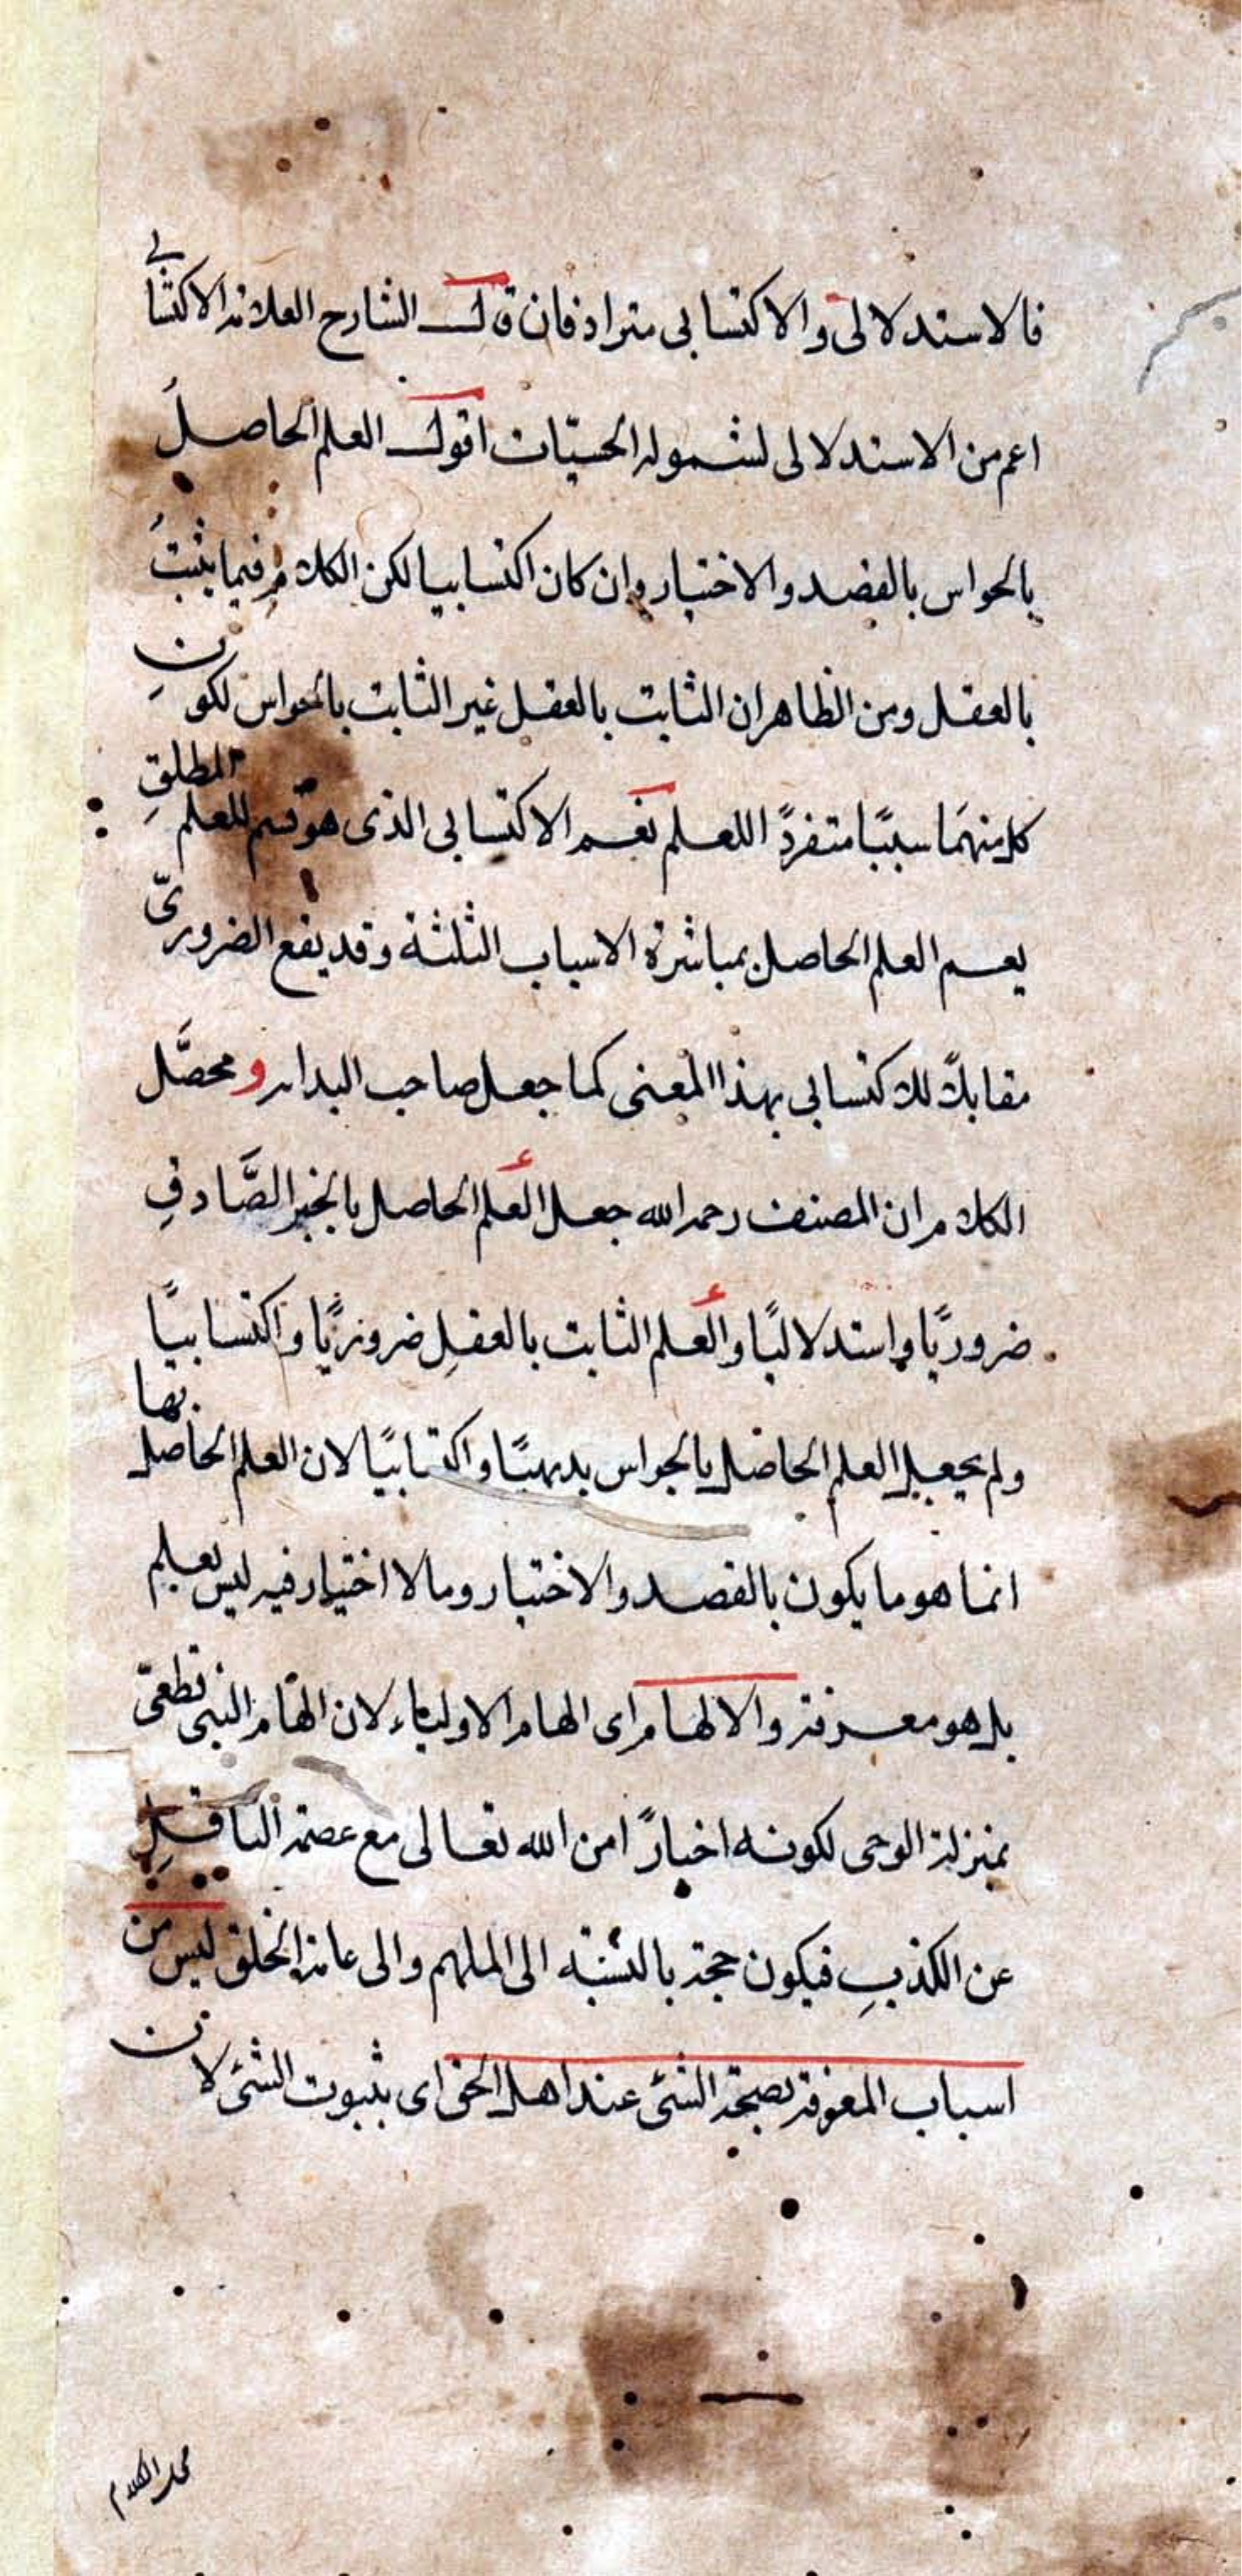 فالاستدلالى والاكتسابى مترادفان قال الشارح العلامة الاكتسابى
اعم من الاستدلالى لشموله الحسيّات اقول العلم الحاصل
بالحواس بالقصد والاختيار وان كان اكتسابيا لكن الكلام فيما يثبت
بالعقل ومن الظاهر ان الثابت بالعقل غير الثابت بالحواس لكون
كل منهما سببًا متفردًا للعلم نعم الاكتسابى الذى هو قسم للعلم المطلق
يعم العلم الحاصل بمباشرة الاسباب الثلثة وقد يقع الضرورىّ
مقابلًا للاكتسابى بهذا المعنى كما جعل صاحب البداية ومحصَّل
الكلام ان المصنف رحمه الله جعل العلم الحاصل بالخبر الصَّادق
ضروريًا واستدلاليًا والعلم الثابت بالعقل ضروريًا واكتسابيًا
ولم يجعل العلم الحاصل بالحواس بديهيًا واكتسابيًا لان العلم الحاصل بها
انما هو ما يكون بالقصد والاختيار وما لا اختيار فيه ليس بعلم
بل هو معرفة والالهام اى الهام الاولياء لان الهام النبى قطعىّ
بمنزلة الوحى لكونه اخبارًا من الله تعالى مع عصمة الناقل
عن الكذب فيكون حجة بالنسبة الى الملهم والى عامة الخلق ليس من
اسباب المعرفة بصحة الشئ عند اهل الحق اى بثبوت الشئ لان